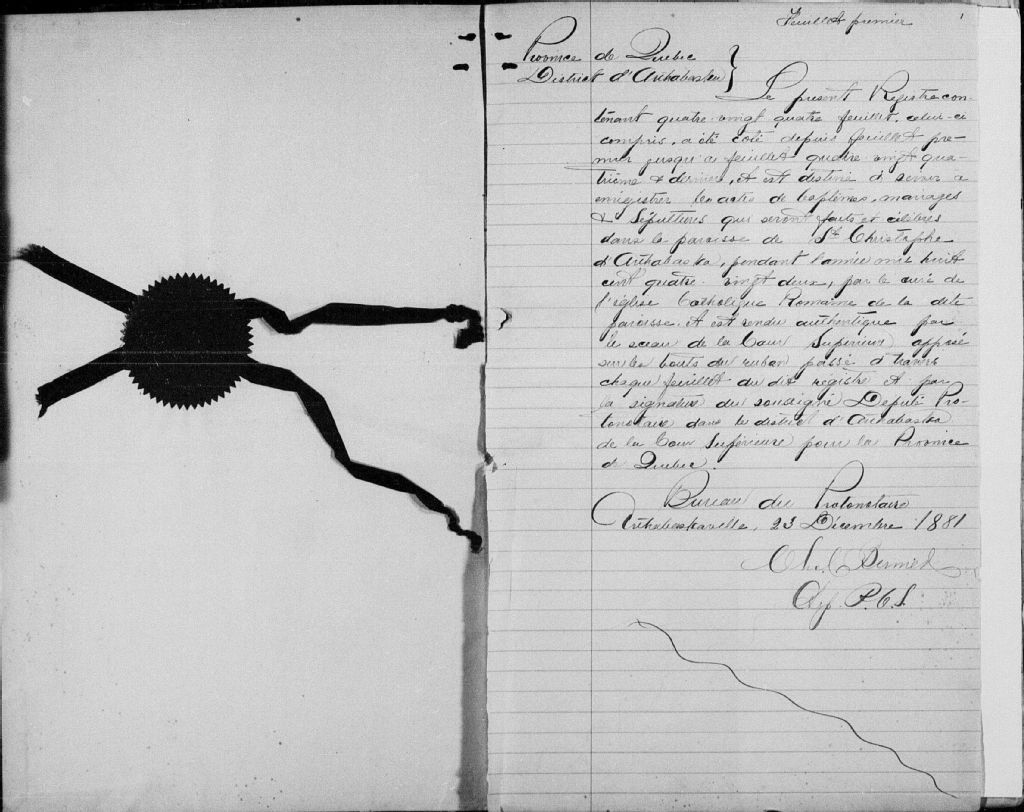 Feuillet premier
1
Province de Quebec
District d'Arthabaska
Le present Registre con-
tenant quatre vingt quatre feuillet, celui-ci
compris, a été coté depuis feuillet pre-
mier jusqu'a feuillet quatre vingt qua-
trième & dernier, et est destiné à servir a
enrégistrer les actes de baptêmes, mariages
& Sépultures qui seront faits et célébrés
dans la paroisse de St Christophe
d'Arthabaska, pendant l'année mil huit
cent quatre-vingt deux, par le curé de
l'église Catholique Romaine de la dite
paroisse. Et est rendu authentique par
le sceau de la Cour Supérieure apposé
sur les bouts du ruban passé à travers
chaque feuillet du dit registre et par
la signature du soussigné Deputé Pro-
tonotaire dans le district d'Arthabaska
de la Cour Supérieure pour la Province
de Quebec.
Bureau du Protonotaire
Arthabaskaville, 23 Décembre 1881
Dep. P.C.S.